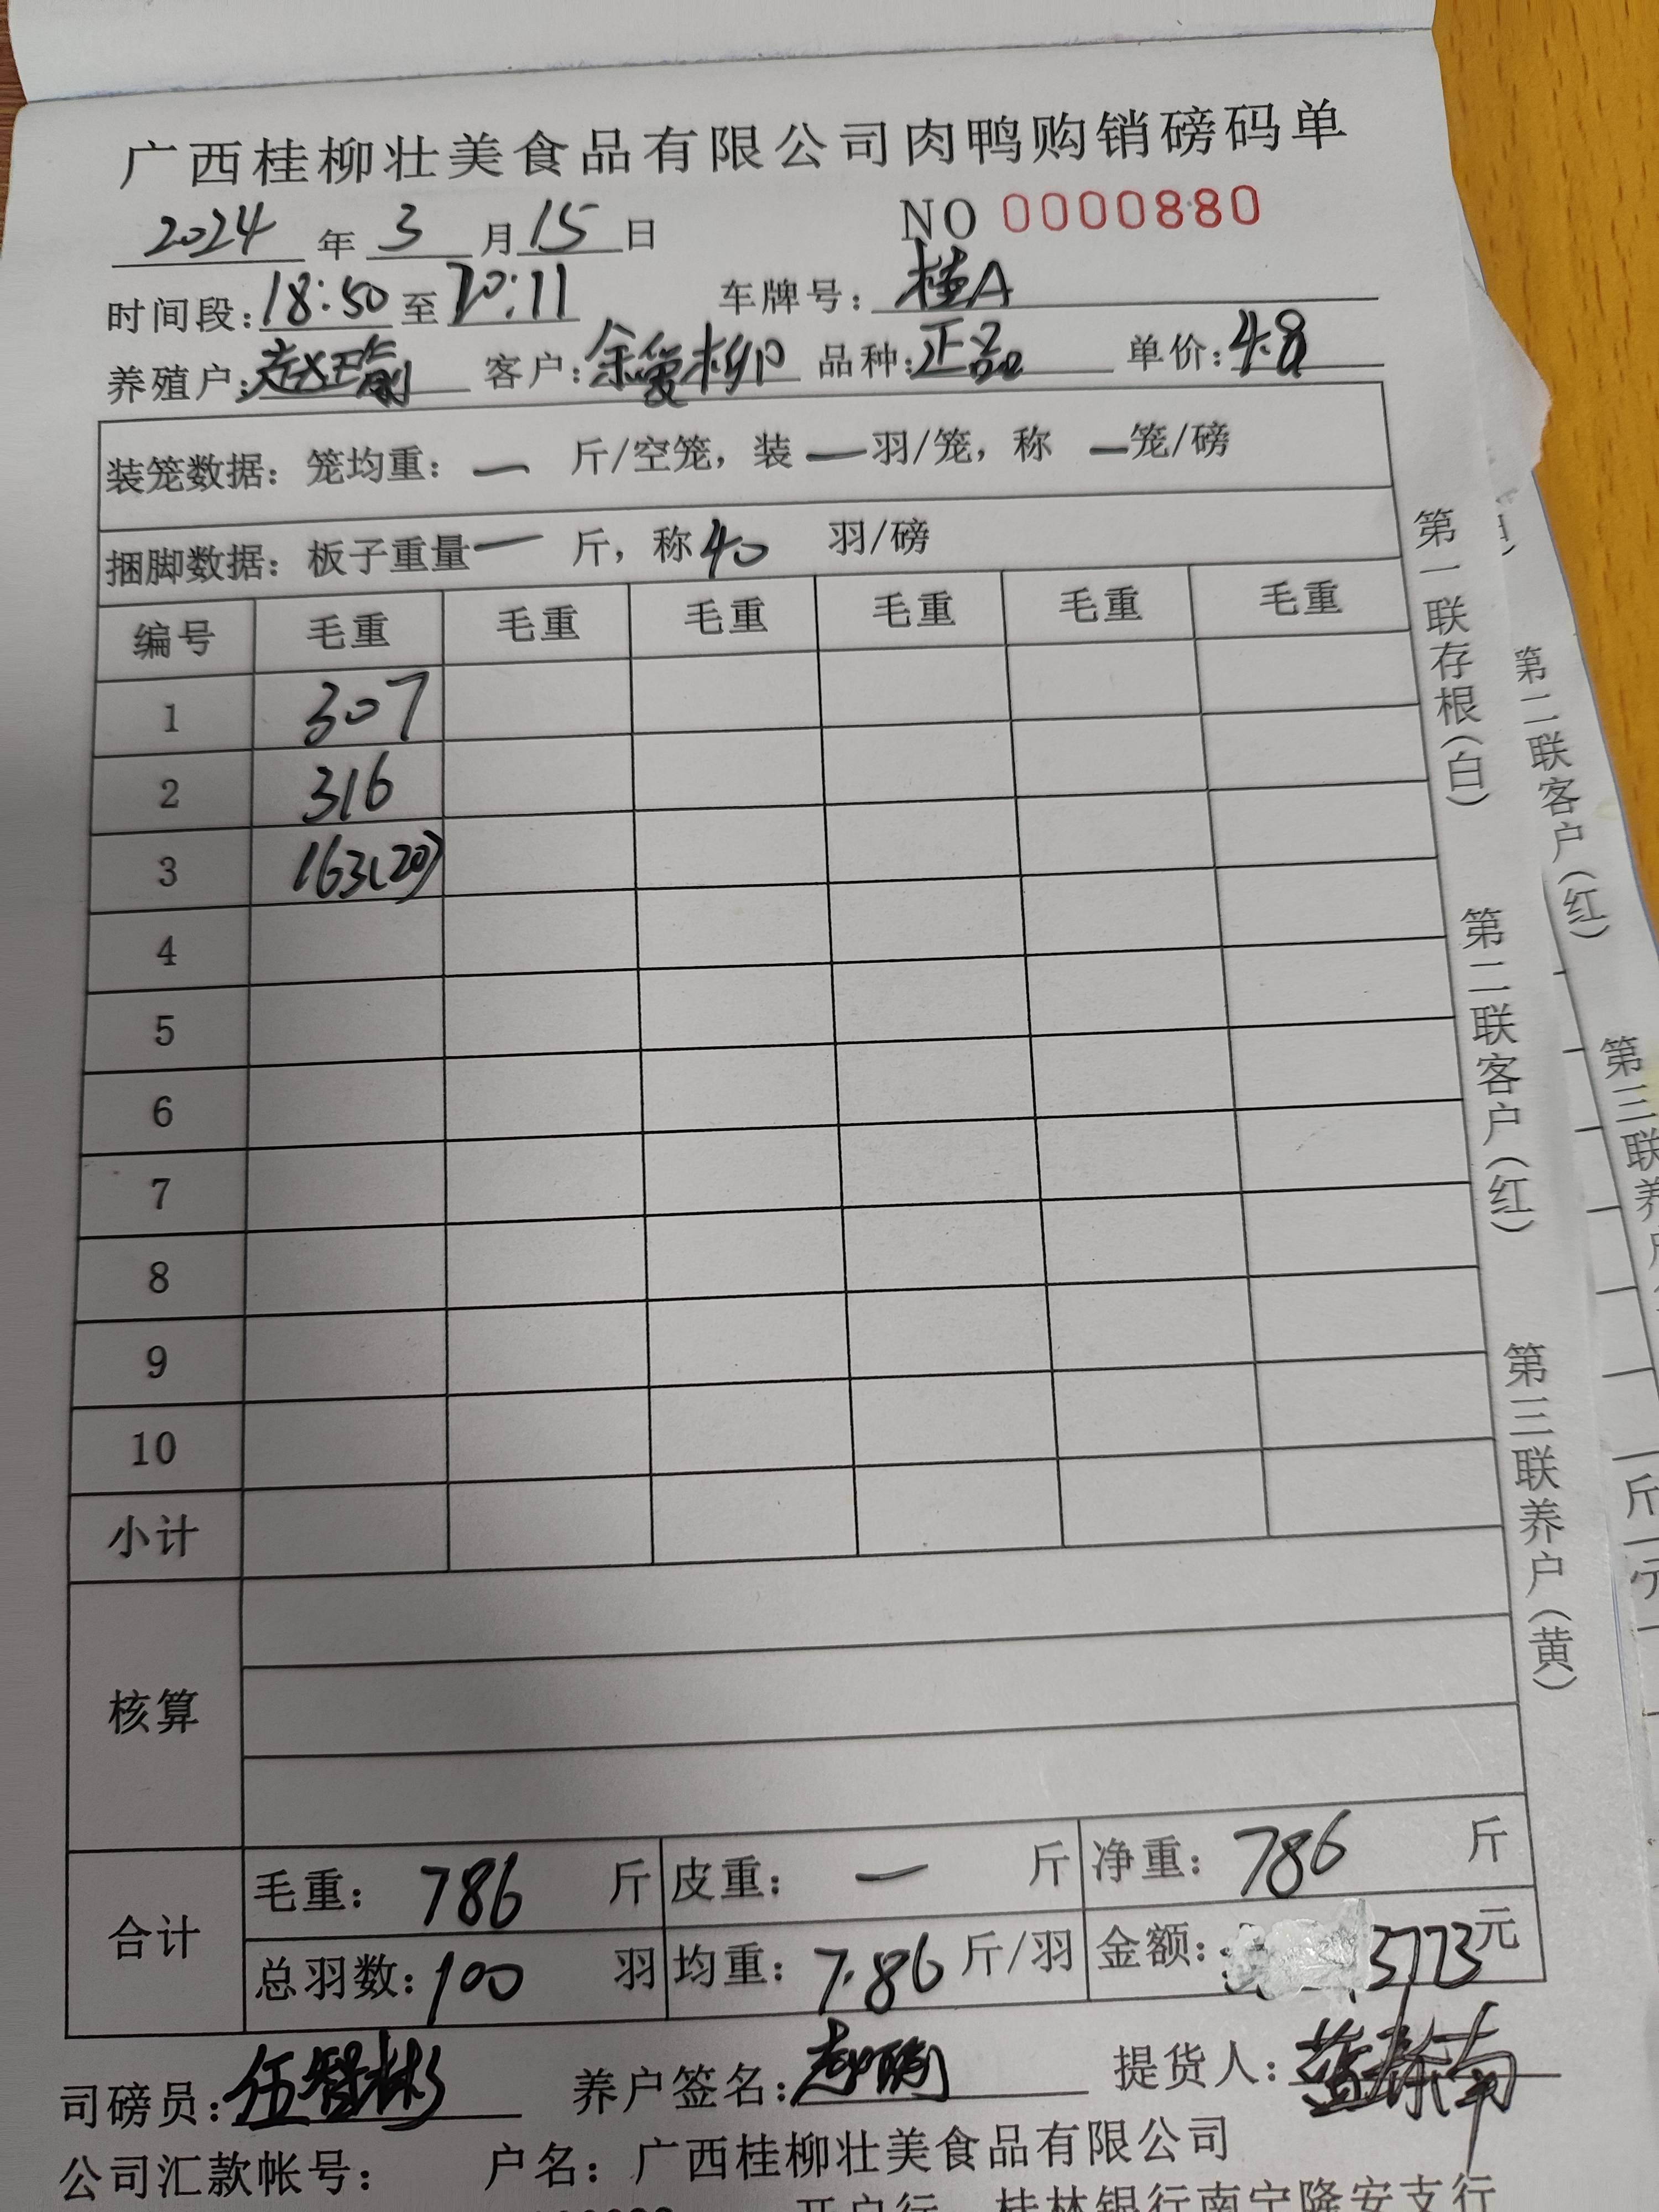 广西桂柳壮美食品有限公司肉鸭购销磅码单
2024年3月15日 NO 0000880
时间段:18:50至20:11 车牌号:桂A
养殖户:赵瑜 客户:余爱柳 品种:正品 单价:4.8
装笼数据:笼均重:— 斤/空笼,装—羽/笼,称—笼/磅
捆脚数据:板子重量— 斤,称40 羽/磅
编号 毛重 毛重 毛重 毛重 毛重 毛重
1 307
2 316
3 163(20)
4
5
6
7
8
9
10
小计
核算
合计
毛重:786 斤 皮重:— 斤 净重:786 斤
总羽数:100 羽 均重:7.86斤/羽 金额:3773元
司磅员:伍智彬 养户签名: 提货人:
公司汇款帐号: 户名:广西桂柳壮美食品有限公司
开户行 桂林银行南宁隆安支行
第一联存根(白)
第二联客户(红)
第三联养户(黄)
第二联客户(红)
第三联养
斤
元